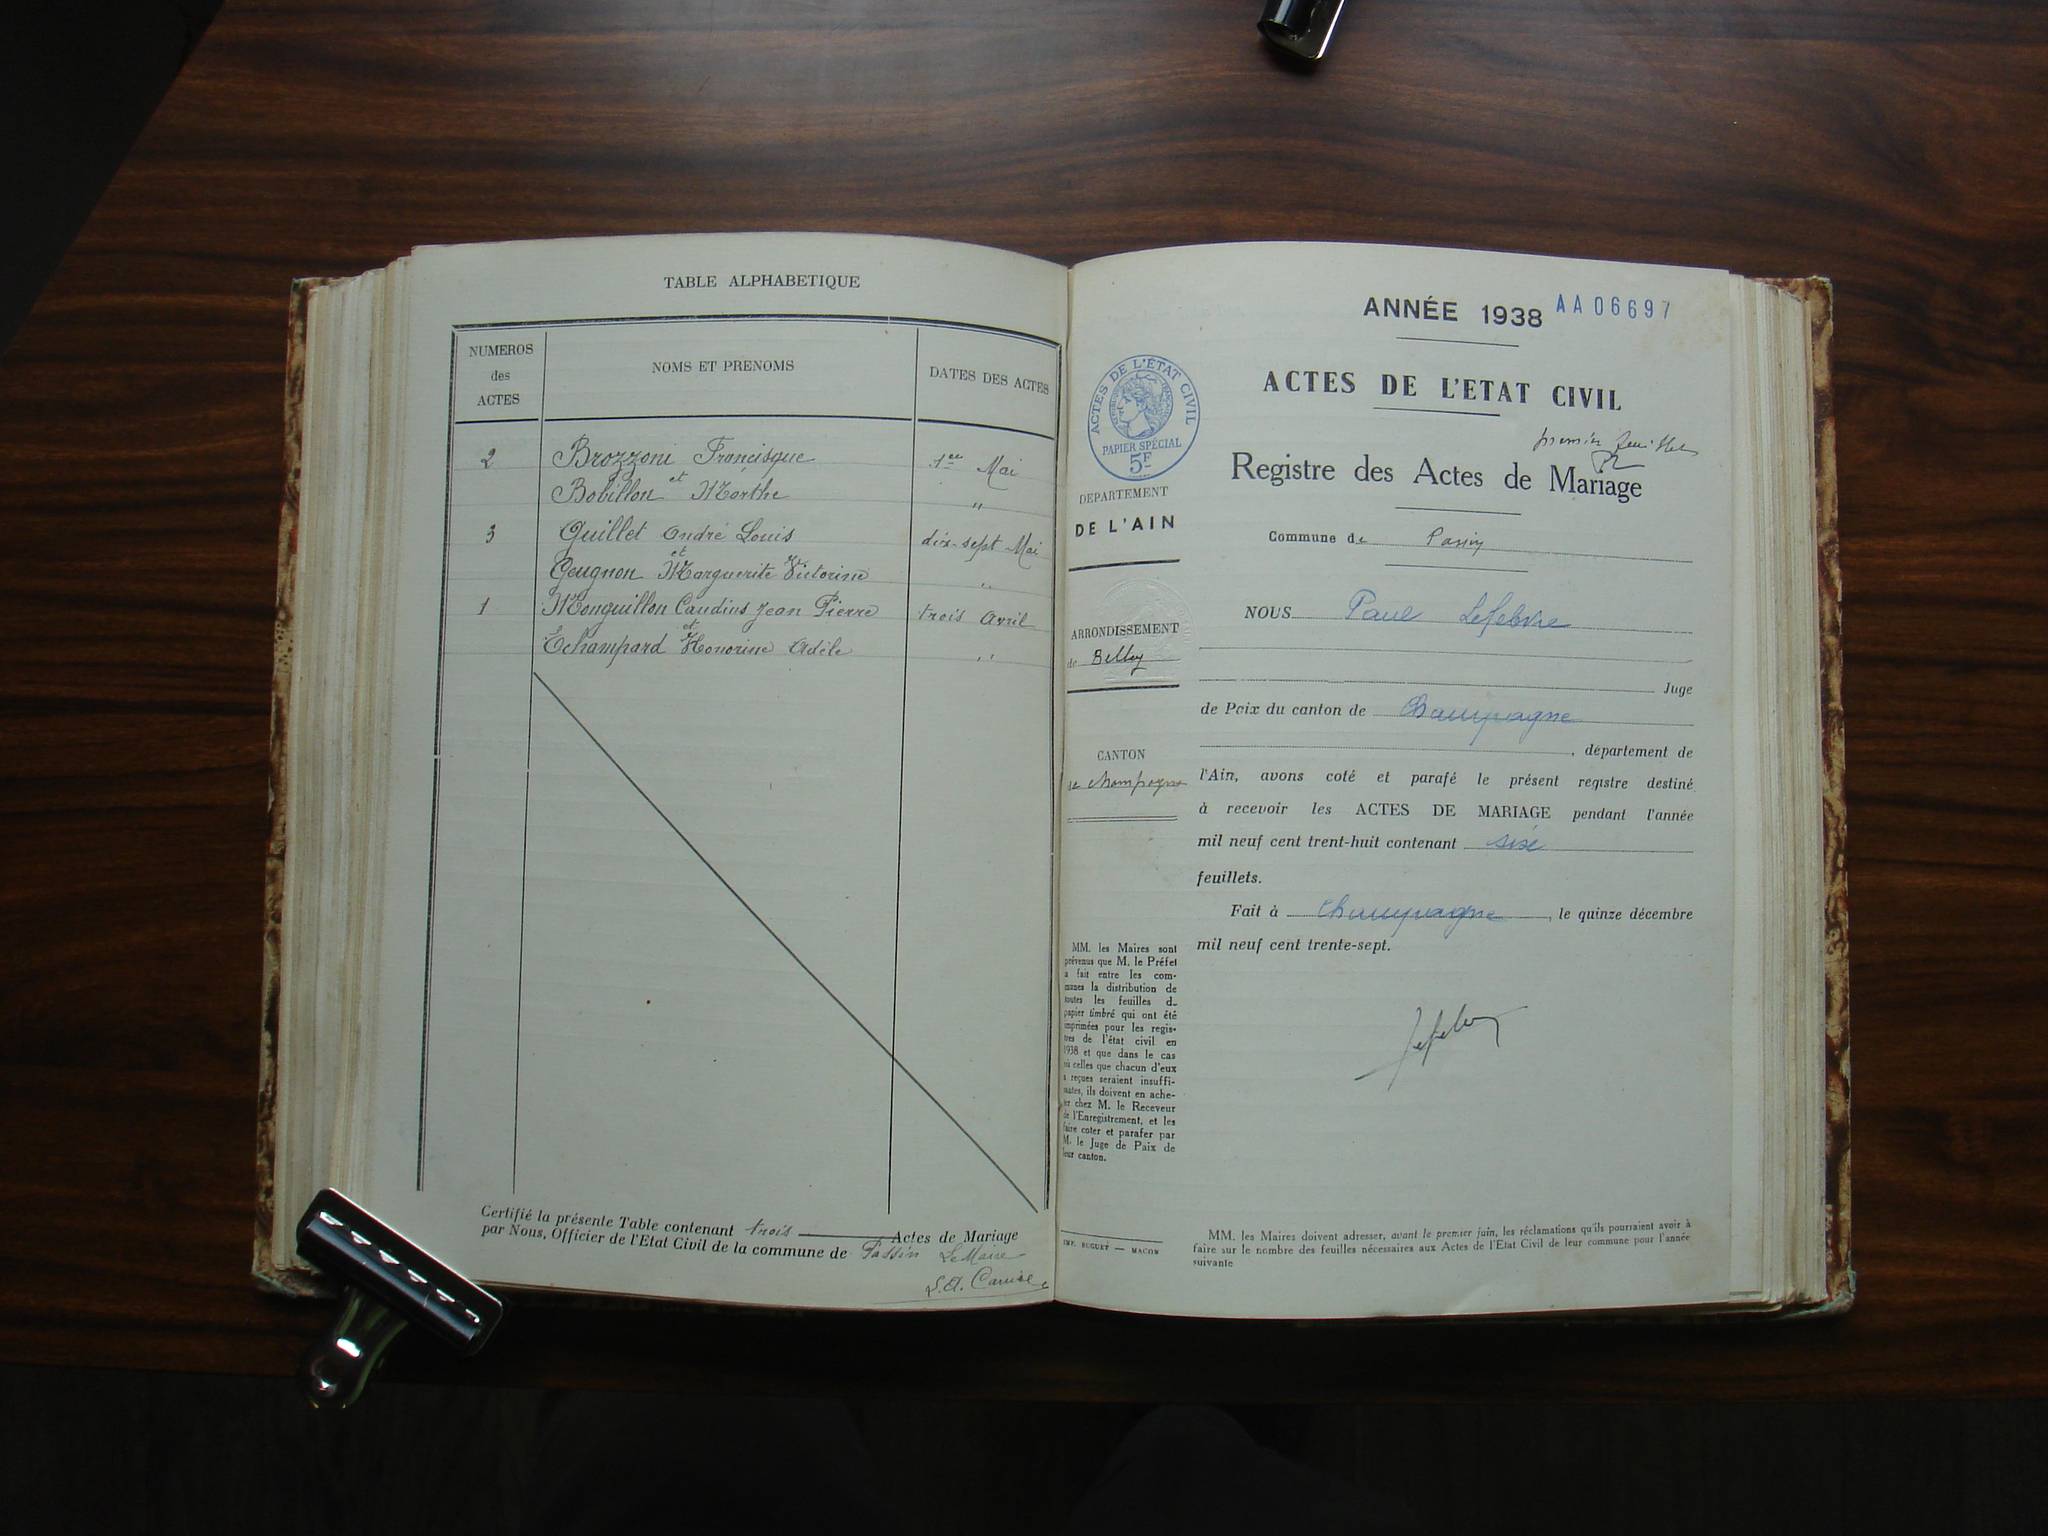 TABLE ALPHABETIQUE
NUMEROS
des
ACTES
NOMS ET PRENOMS
DATES DES ACTES
2 Brozzoni Francisque 1er Mai
et
Bobillon Marthe "
3 Guillet André Louis dix-sept Mai
et
Geugnon Marguerite Victorine "
1 Monguillon Caudius Jean Pierre trois Avril
et
Echampard Honorine Adèle "
Certifié la présente Table contenant trois Actes de Mariage
par Nous, Officier de l'Etat Civil de la commune de Passin Le Maire
ANNÉE 1938 AA06697
ACTES DE L'ETAT CIVIL
premier feuillet
Registre des Actes de Mariage
Commune de Passin
NOUS Paul Lefebvre
Juge
de Paix du canton de Champagne
, département de
l'Ain, avons coté et parafé le présent registre destiné
à recevoir les ACTES DE MARIAGE pendant l'année
mil neuf cent trent-huit contenant six
feuillets.
Fait à Champagne, le quinze décembre
mil neuf cent trente-sept.
Lefebvre
ACTES DE L'ÉTAT CIVIL
PAPIER SPÉCIAL
5F
DEPARTEMENT
DE L'AIN
ARRONDISSEMENT
de Belley
CANTON
de Champagne
MM. les Maires sont
prévenus que M. le Préfet
a fait entre les com-
munes la distribution de
toutes les feuilles de
papier timbré qui ont été
imprimées pour les regis-
tres de l'état civil en
1938 et que dans le cas
où celles que chacun d'eux
a reçues seraient insuffi-
santes, ils doivent en ache-
ter chez M. le Receveur
de l'Enregistrement, et les
faire coter et parafer par
M. le Juge de Paix de
leur canton.
IMP. BUGUET — MACON
MM. les Maires doivent adresser, avant le premier juin, les réclamations qu'ils pourraient avoir à
faire sur le nombre des feuilles nécessaires aux Actes de l'Etat Civil de leur commune pour l'année
suivante